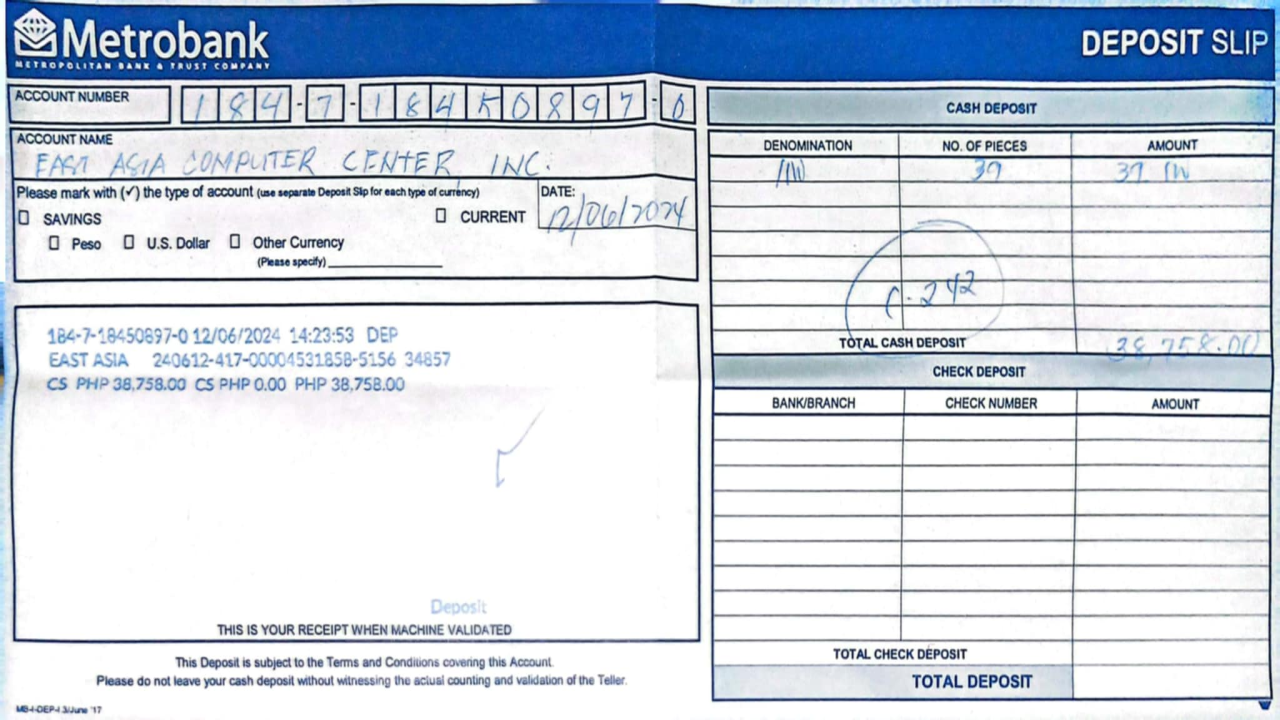 Metrobank
METROPOLITAN BANK & TRUST COMPANY
DEPOSIT SLIP
ACCOUNT NUMBER 184-7-18450897-0
ACCOUNT NAME
EAST ASIA COMPUTER CENTER INC.
Please mark with (✓) the type of account (use separate Deposit Slip for each type of currency)
SAVINGS
CURRENT
Peso U.S. Dollar Other Currency
(Please specify)
DATE:
12/06/2024
184-7-18450897-0 12/06/2024 14:23:53 DEP
EAST ASIA 240612-417-00004531858-5156 34857
CS PHP 38,758.00 CS PHP 0.00 PHP 38,758.00
Deposit
THIS IS YOUR RECEIPT WHEN MACHINE VALIDATED
This Deposit is subject to the Terms and Conditions covering this Account.
Please do not leave your cash deposit without witnessing the actual counting and validation of the Teller.
MB-I-DEP-I 3/June '17
CASH DEPOSIT
DENOMINATION NO. OF PIECES AMOUNT
39 39
242
TOTAL CASH DEPOSIT 38,758.00
CHECK DEPOSIT
BANK/BRANCH CHECK NUMBER AMOUNT
TOTAL CHECK DEPOSIT
TOTAL DEPOSIT